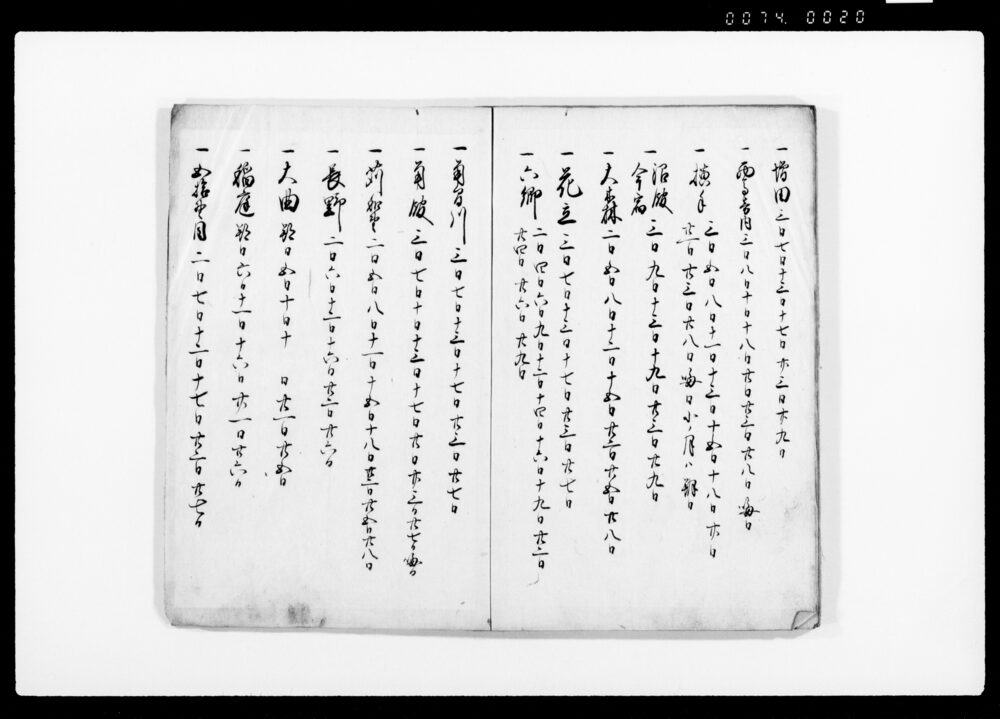 0074. 0020
一 増田 三日 七日 十三日 十七日 廿三日 廿九日
一 西馬音内 三日 八日 十日 十八日 廿日 廿三日 廿八日 晦日
一 横手 三日 五日 八日 十一日 十三日 十五日 十八日 廿日
廿一日 廿三日 廿八日 晦日 小ノ月ハ朔日
一 沼舘 三日 九日 十三日 十九日 廿三日 廿九日
今宿
一 大森 二日 五日 八日 十二日 十五日 廿二日 廿五日 廿八日
一 花立 三日 七日 十三日 十七日 廿三日 廿七日
一 六郷 二日 四日 六日 九日 十二日 十四日 十六日 十九日 廿二日
廿四日 廿六日 廿九日
一 角間川 三日 七日 十三日 十七日 廿三日 廿七日
一 角舘 三日 七日 十日 十三日 十七日 廿日 廿三日 廿七日 晦日
一 苅和野 二日 五日 八日 十一日 十五日 十八日 廿二日 廿五日 廿八日
一 長野 二日 六日 十二日 十六日 廿二日 廿六日
一 大曲 朔日 五日 十日 十 日 廿一日 廿五日
一 稲庭 朔日 六日 十一日 十六日 廿一日 廿六日
一 目 二日 七日 十二日 十七日 廿二日 廿七日